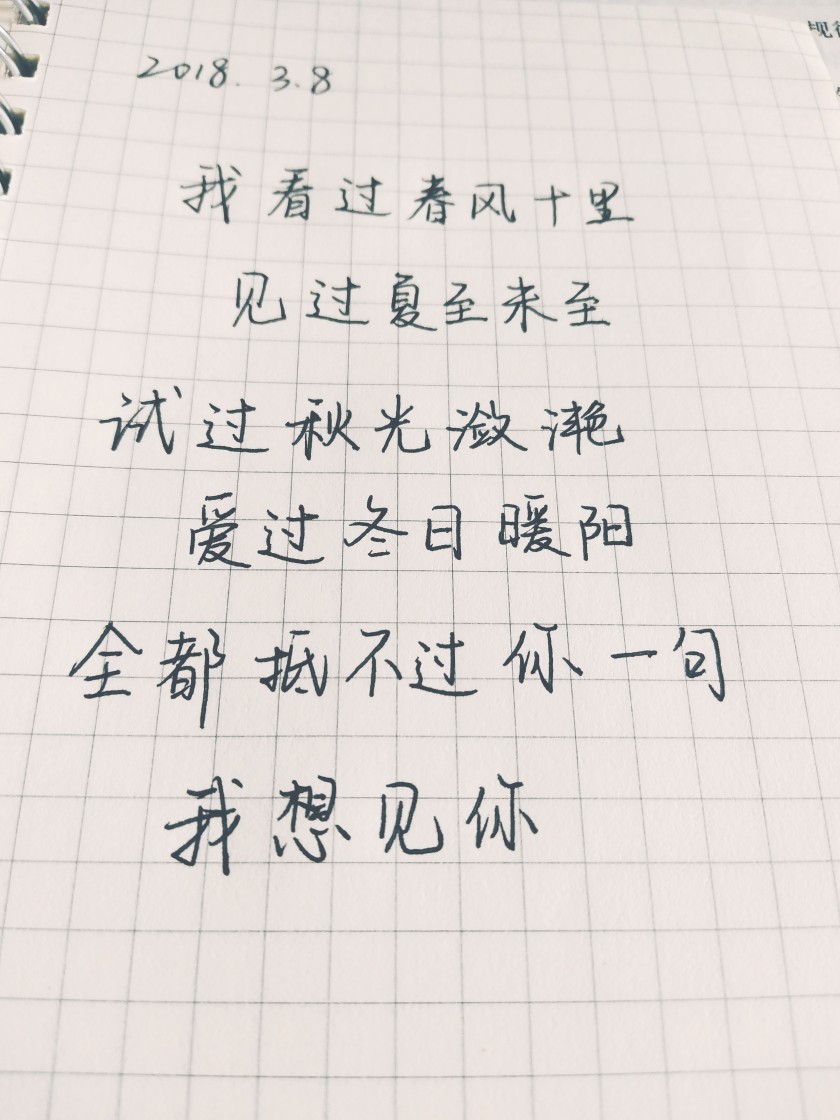 2018. 3.8
我看过春风十里
见过夏至未至
试过秋光潋滟
爱过冬日暖阳
全都抵不过你一句
我想见你